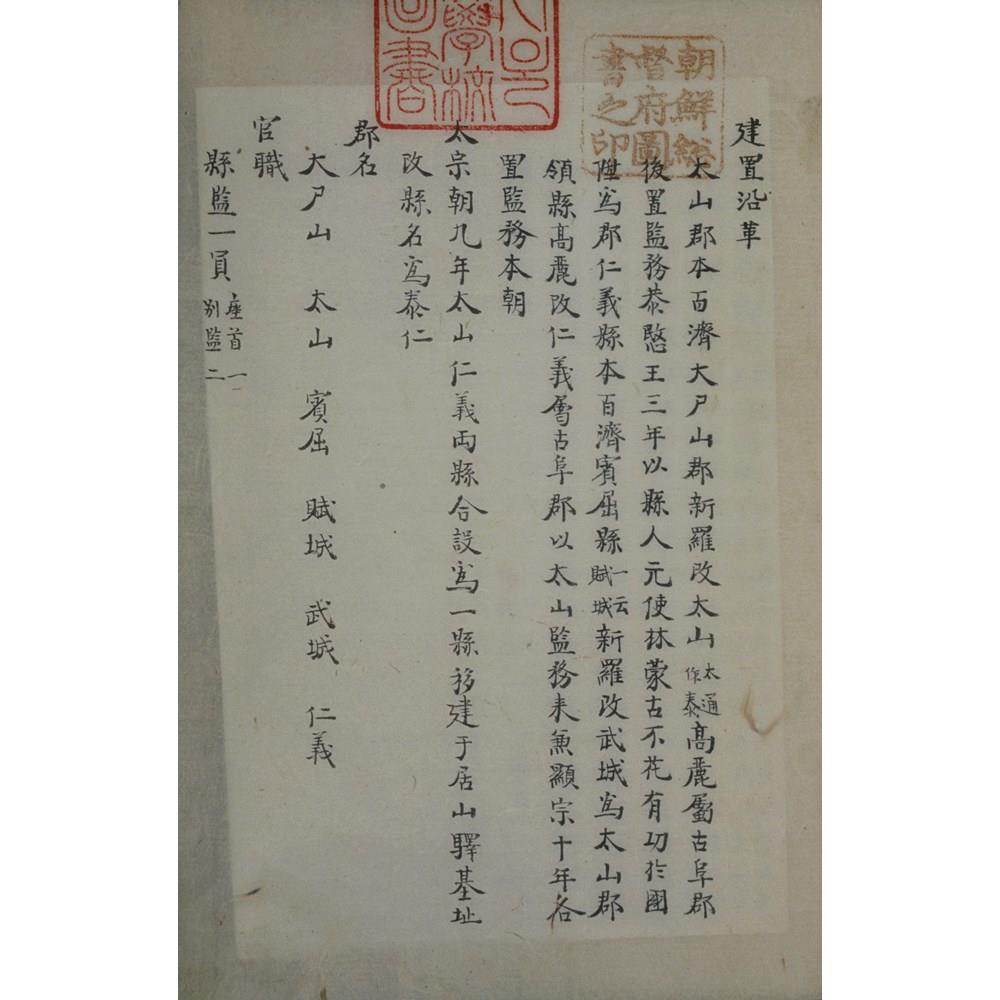 建置沿革
太山郡本百濟大尸山郡新羅改太山太通作泰高麗屬古阜郡
後置監務恭愍王三年以縣人元使林蒙古不花有功於國
陞為郡仁義縣本百濟賓屈縣一云賦城新羅改武城為太山郡
領縣高麗改仁義屬古阜郡以太山監務来兼顯宗十年各
置監務本朝
太宗朝九年太山仁義両縣合設為一縣移建于居山驛基址
改縣名為泰仁
郡名
大尸山 太山 賓屈 賦城 武城 仁義
官職
縣監一員座首一別監二
朝鮮総
督府圖
書之印
學校
圖書